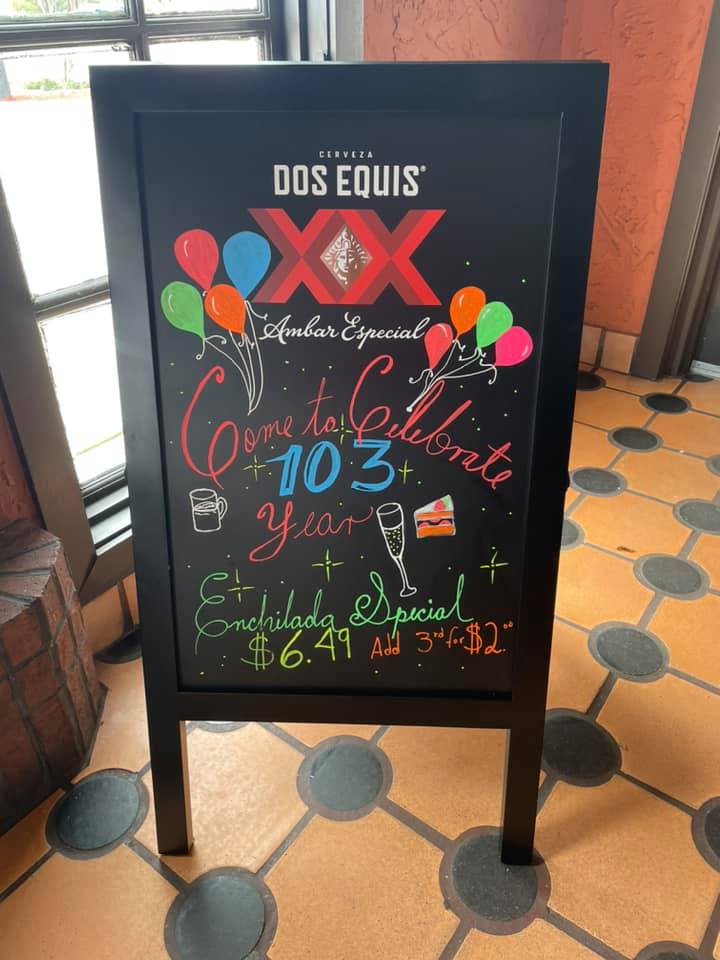 CERVEZA
DOS EQUIS®
XX
Ambar Especial
Come to! Celebrate
103
Year
Enchilada Special
$6.49 Add 3rd for $2.00